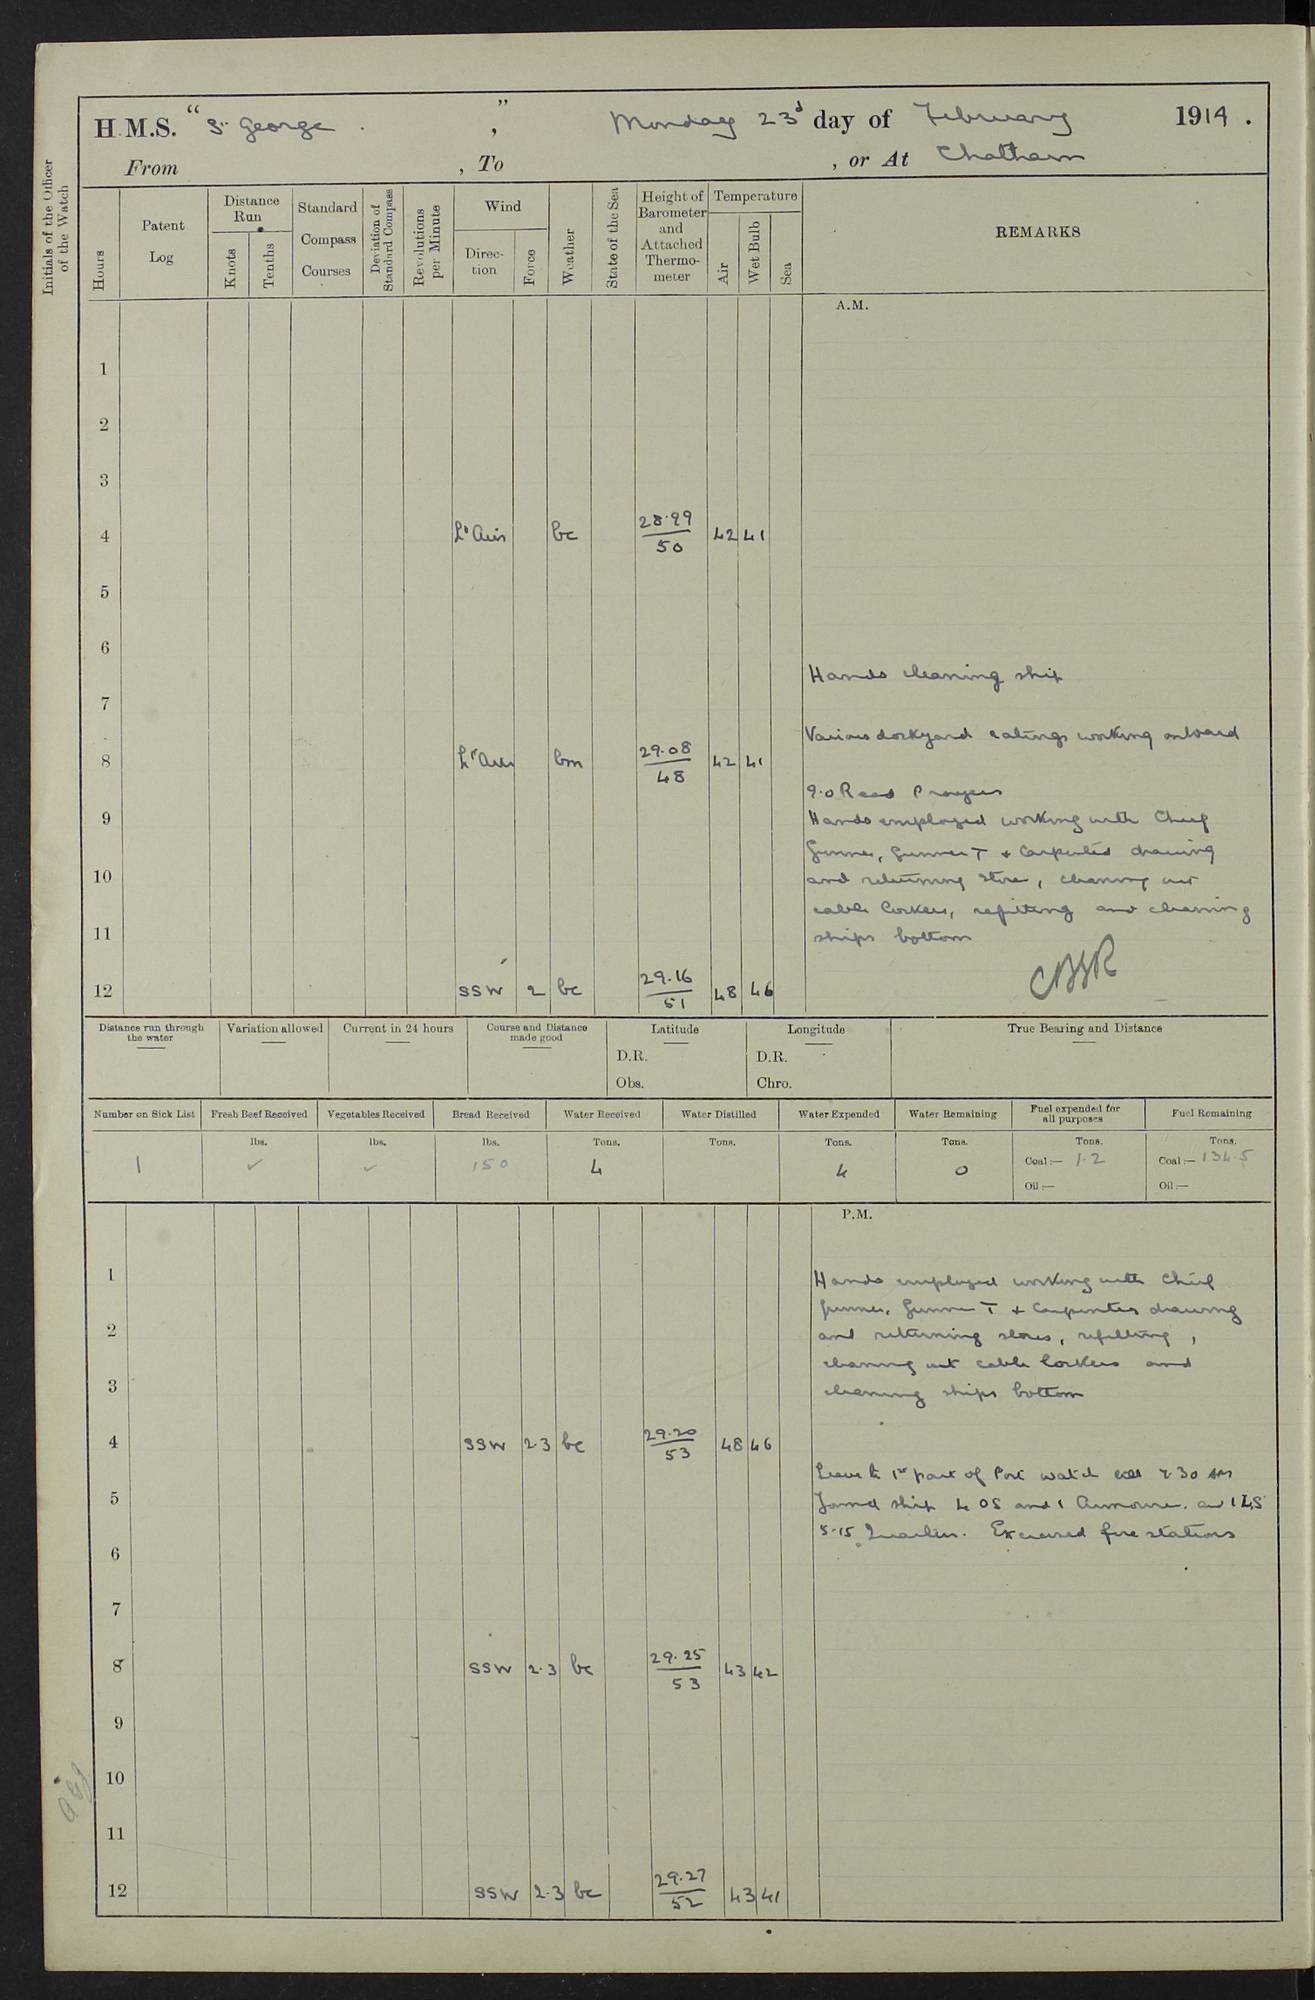 H.M.S. "St. George", Monday 23d day of February 1914.
From , To , or At Chatham
Initials of the Officer of the Watch
Hours
Patent Log
Distance Run
Knots
Tenths
Standard Compass Courses
Deviation of Standard Compass
Revolutions per Minute
Wind
Direction
Force
Weather
State of the Sea
Height of Barometer and Attached Thermometer
Temperature
Air
Wet Bulb
Sea
REMARKS
A.M.
1
2
3
4 Lt Airs bc 28.99/50 42 41
5
6
Hands cleaning ship
7
Various dockyard ratings working onboard
8 Lt Airs bm 29.08/48 42 41
9.0 Read Prayers
9 Hands employed working with Chief
Gunner, Gunner T & Carpenter drawing
10 and returning stores, cleaning out
cable lockers, refitting and cleaning
11 ships bottom
12 SSW 2 bc 29.16/51 48 46
Distance run through the water
Variation allowed
Current in 24 hours
Course and Distance made good
Latitude
D.R.
Obs.
Longitude
D.R.
Chro.
True Bearing and Distance
Number on Sick List
Fresh Beef Received
Vegetables Received
Bread Received
Water Received
Water Distilled
Water Expended
Water Remaining
Fuel expended for all purposes
Fuel Remaining
1
lbs. ✓
lbs. ✓
lbs. 150
Tons. 4
Tons.
Tons. 4
Tons. 0
Tons. Coal:— 1.2
Oil:—
Tons. Coal:— 134.5
Oil:—
P.M.
1 Hands employed working with Chief
Gunner, Gunner T & Carpenter drawing
2 and returning stores, refitting,
cleaning out cable lockers and
3 cleaning ships bottom
4 SSW 2.3 bc 29.20/53 48 46
Leave to 1st part of Port watch 7.30 AM
5 Joined ship 4 OS and 1 Armourer and 1 LS
5.15 Quarters. Exercised fire stations
6
7
8 SSW 2.3 bc 29.25/53 43 42
9
10
11
12 SSW 2.3 bc 29.27/52 43 41